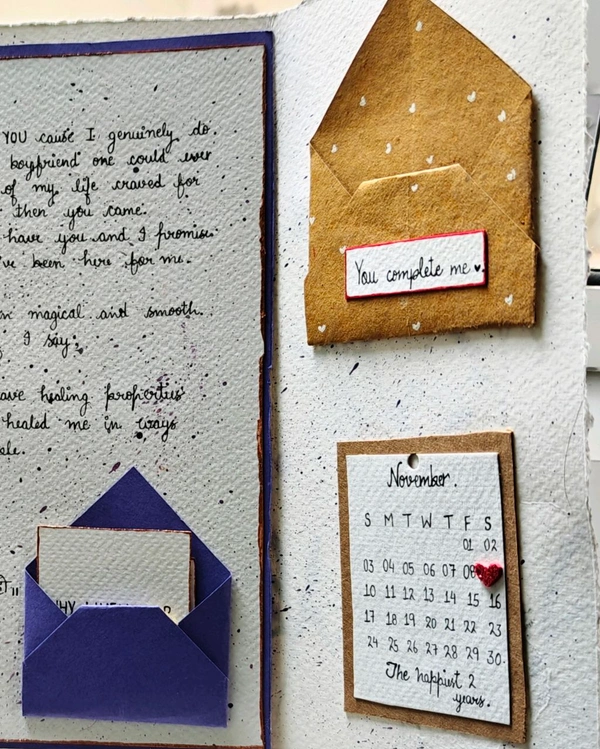 YOU cause I genuinely do.
boyfriend one could ever
of my life craved for
then you came.
have you and I promise
've been here for me.
magical and smooth.
I say;
healing properties
healed me in ways
You complete me
November.
S M T W T F S
01 02
03 04 05 06 07 08
10 11 12 13 14 15 16
17 18 19 20 21 22 23
24 25 26 27 28 29 30.
The happiest 2
years.